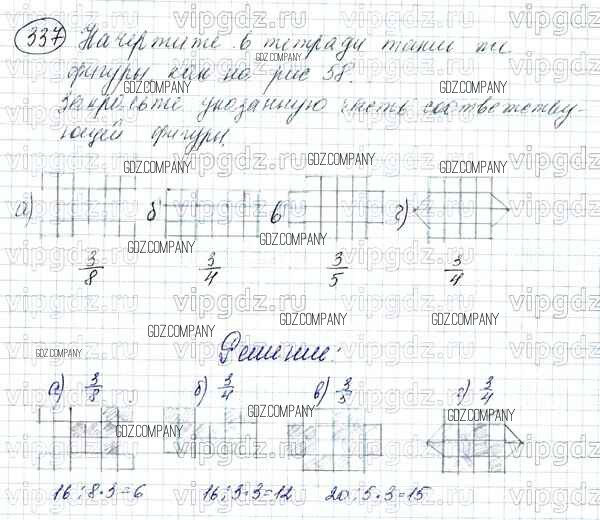 337 Начертите в тетради такие же
фигуры как на рис 38.
Закрасьте указанную часть соответству-
ющей фигуры.
а) б в г)
3/8 3/4 3/5 3/4
Решение:
а) 3/8 б) 3/4 в) 3/5 г) 3/4
16:8·3=6 16:3·3=12 20:5·3=15
GDZ.COMPANY
vipgdz.ru